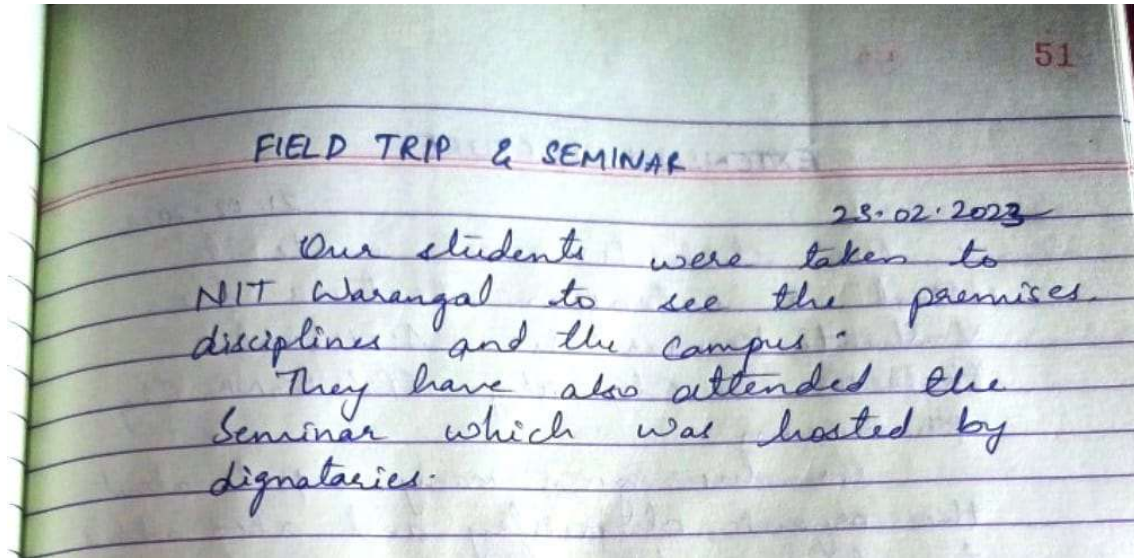 51
FIELD TRIP & SEMINAR
28.02.2023
Our students were taken to
NIT Warangal to see the premises.
disciplines and the campus.
They have also attended the
Seminar which was hosted by
dignataries.